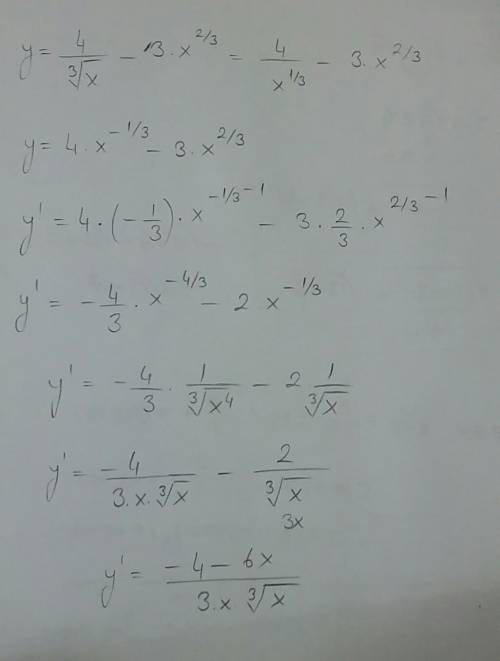 y = 4/∛x - 3·x^(2/3) = 4/x^(1/3) - 3·x^(2/3)
y = 4·x^(-1/3) - 3·x^(2/3)
y' = 4·(-1/3)·x^(-1/3-1) - 3·2/3·x^(2/3-1)
y' = -4/3·x^(-4/3) - 2x^(-1/3)
y' = -4/3·1/∛x⁴ - 2 1/∛x
y' = -4/(3.x.∛x) - 2/∛x
3x
y' = (-4-6x)/(3.x∛x)